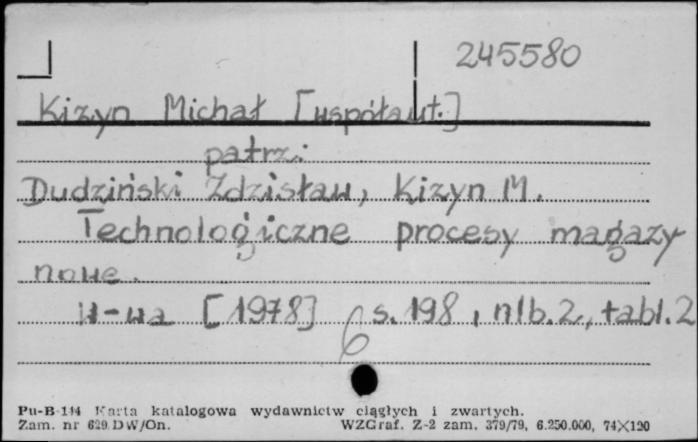 245580
Kizyn Michał [współaut.]
patrz:
Dudziński Zdzisław, Kizyn M.
Technologiczne procesy magazy
nowe.
W-wa [1978] s. 198, nlb. 2, tabl. 2
6
Pu-B-144 Karta katalogowa wydawnictw ciągłych i zwartych.
Zam. nr 629 DW/On. WZGraf. Z-2 zam. 379/79, 6.250.000, 74×120